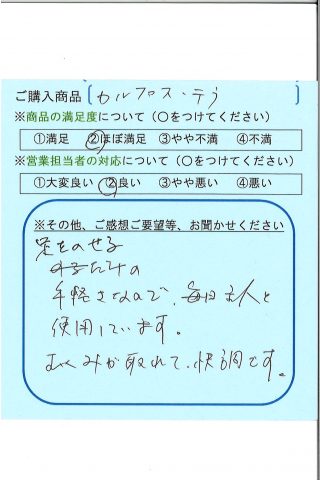 ご購入商品〔カルファス・テラ〕
※商品の満足度について（○をつけてください）
①満足 ②ほぼ満足 ③やや不満 ④不満
※営業担当者の対応について（○をつけてください）
①大変良い ②良い ③やや悪い ④悪い
※その他、ご感想ご要望等、お聞かせください
足をのせる
だけの
手軽さなので、毎日主人と
使用しています。
むくみが取れて、快調です。